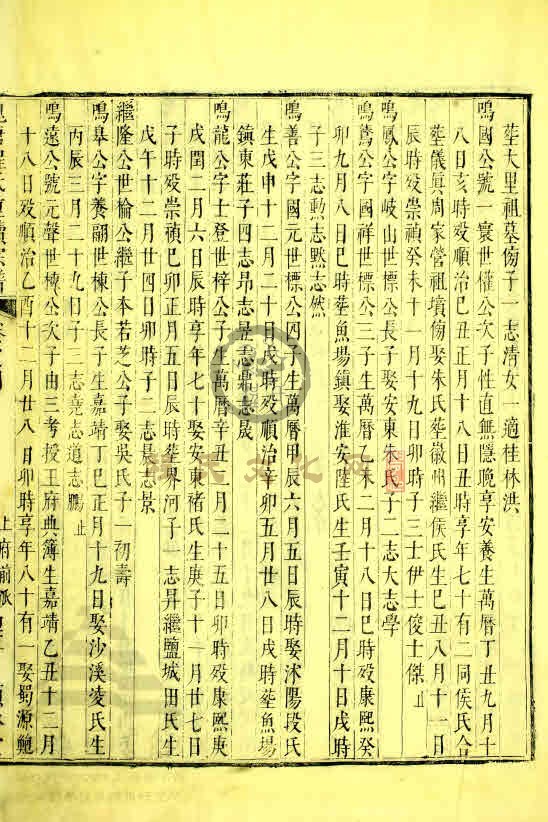 塟大里祖墓傍子一志清女一適桂林洪
鳴國公號一寰世㰌公次子性直無隱晚享安養生萬曆丁丑九月十
八日亥時殁順治己丑正月十八日酉時享年七十有二同侯氏合
塟儀眞周家營祖墳傍娶朱氏塟徽州繼侯氏生己丑八月十一日
辰時殁崇禎癸未十一月十九日卯時子三士伊士俊士傑止
鳴鳳公字岐山世標公長子娶安東朱氏子二志大志學
鳴鸞公字國祥世標公三子生萬曆 未二月十八日巳時殁康熙癸
卯九月八日巳時塟魚場鎮娶淮安陸氏生壬寅十二月十日戌時
子三志勲志默志然
鳴善公字國元世標公四子生萬曆甲辰六月五日辰時娶沭陽段氏
生戊申十二月二十日戌時殁順治辛卯五月廿八日戌時塟魚場
鎮東莊子四志昂志昱志鼎志晟
鳴龍公字士登世梓公子生萬曆辛丑二月二十五日卯時殁康熙庚
戌閏二月六日辰時享年七十娶安東褚氏生庚子十一月廿七日
子時殁崇禎己卯正月五日辰時塟界河子一志昇繼鹽城田氏生
戊午十二月廿四日卯時子二志晟志景
繼隆公世㮋公繼子本若芝公子娶吳氏子一初壽
鳴皋公字養翮世棟公長子生嘉靖丁巳正月十九日娶沙溪凌氏生
丙辰三月二十九日子三志堯志道志鵬止
鳴遠公號元聲世棟公次子由三考授王府典簿生嘉靖乙丑十二月
十八日殁順治乙酉十二月廿八日卯時享年八十有一娶蜀源鮑
上府前派